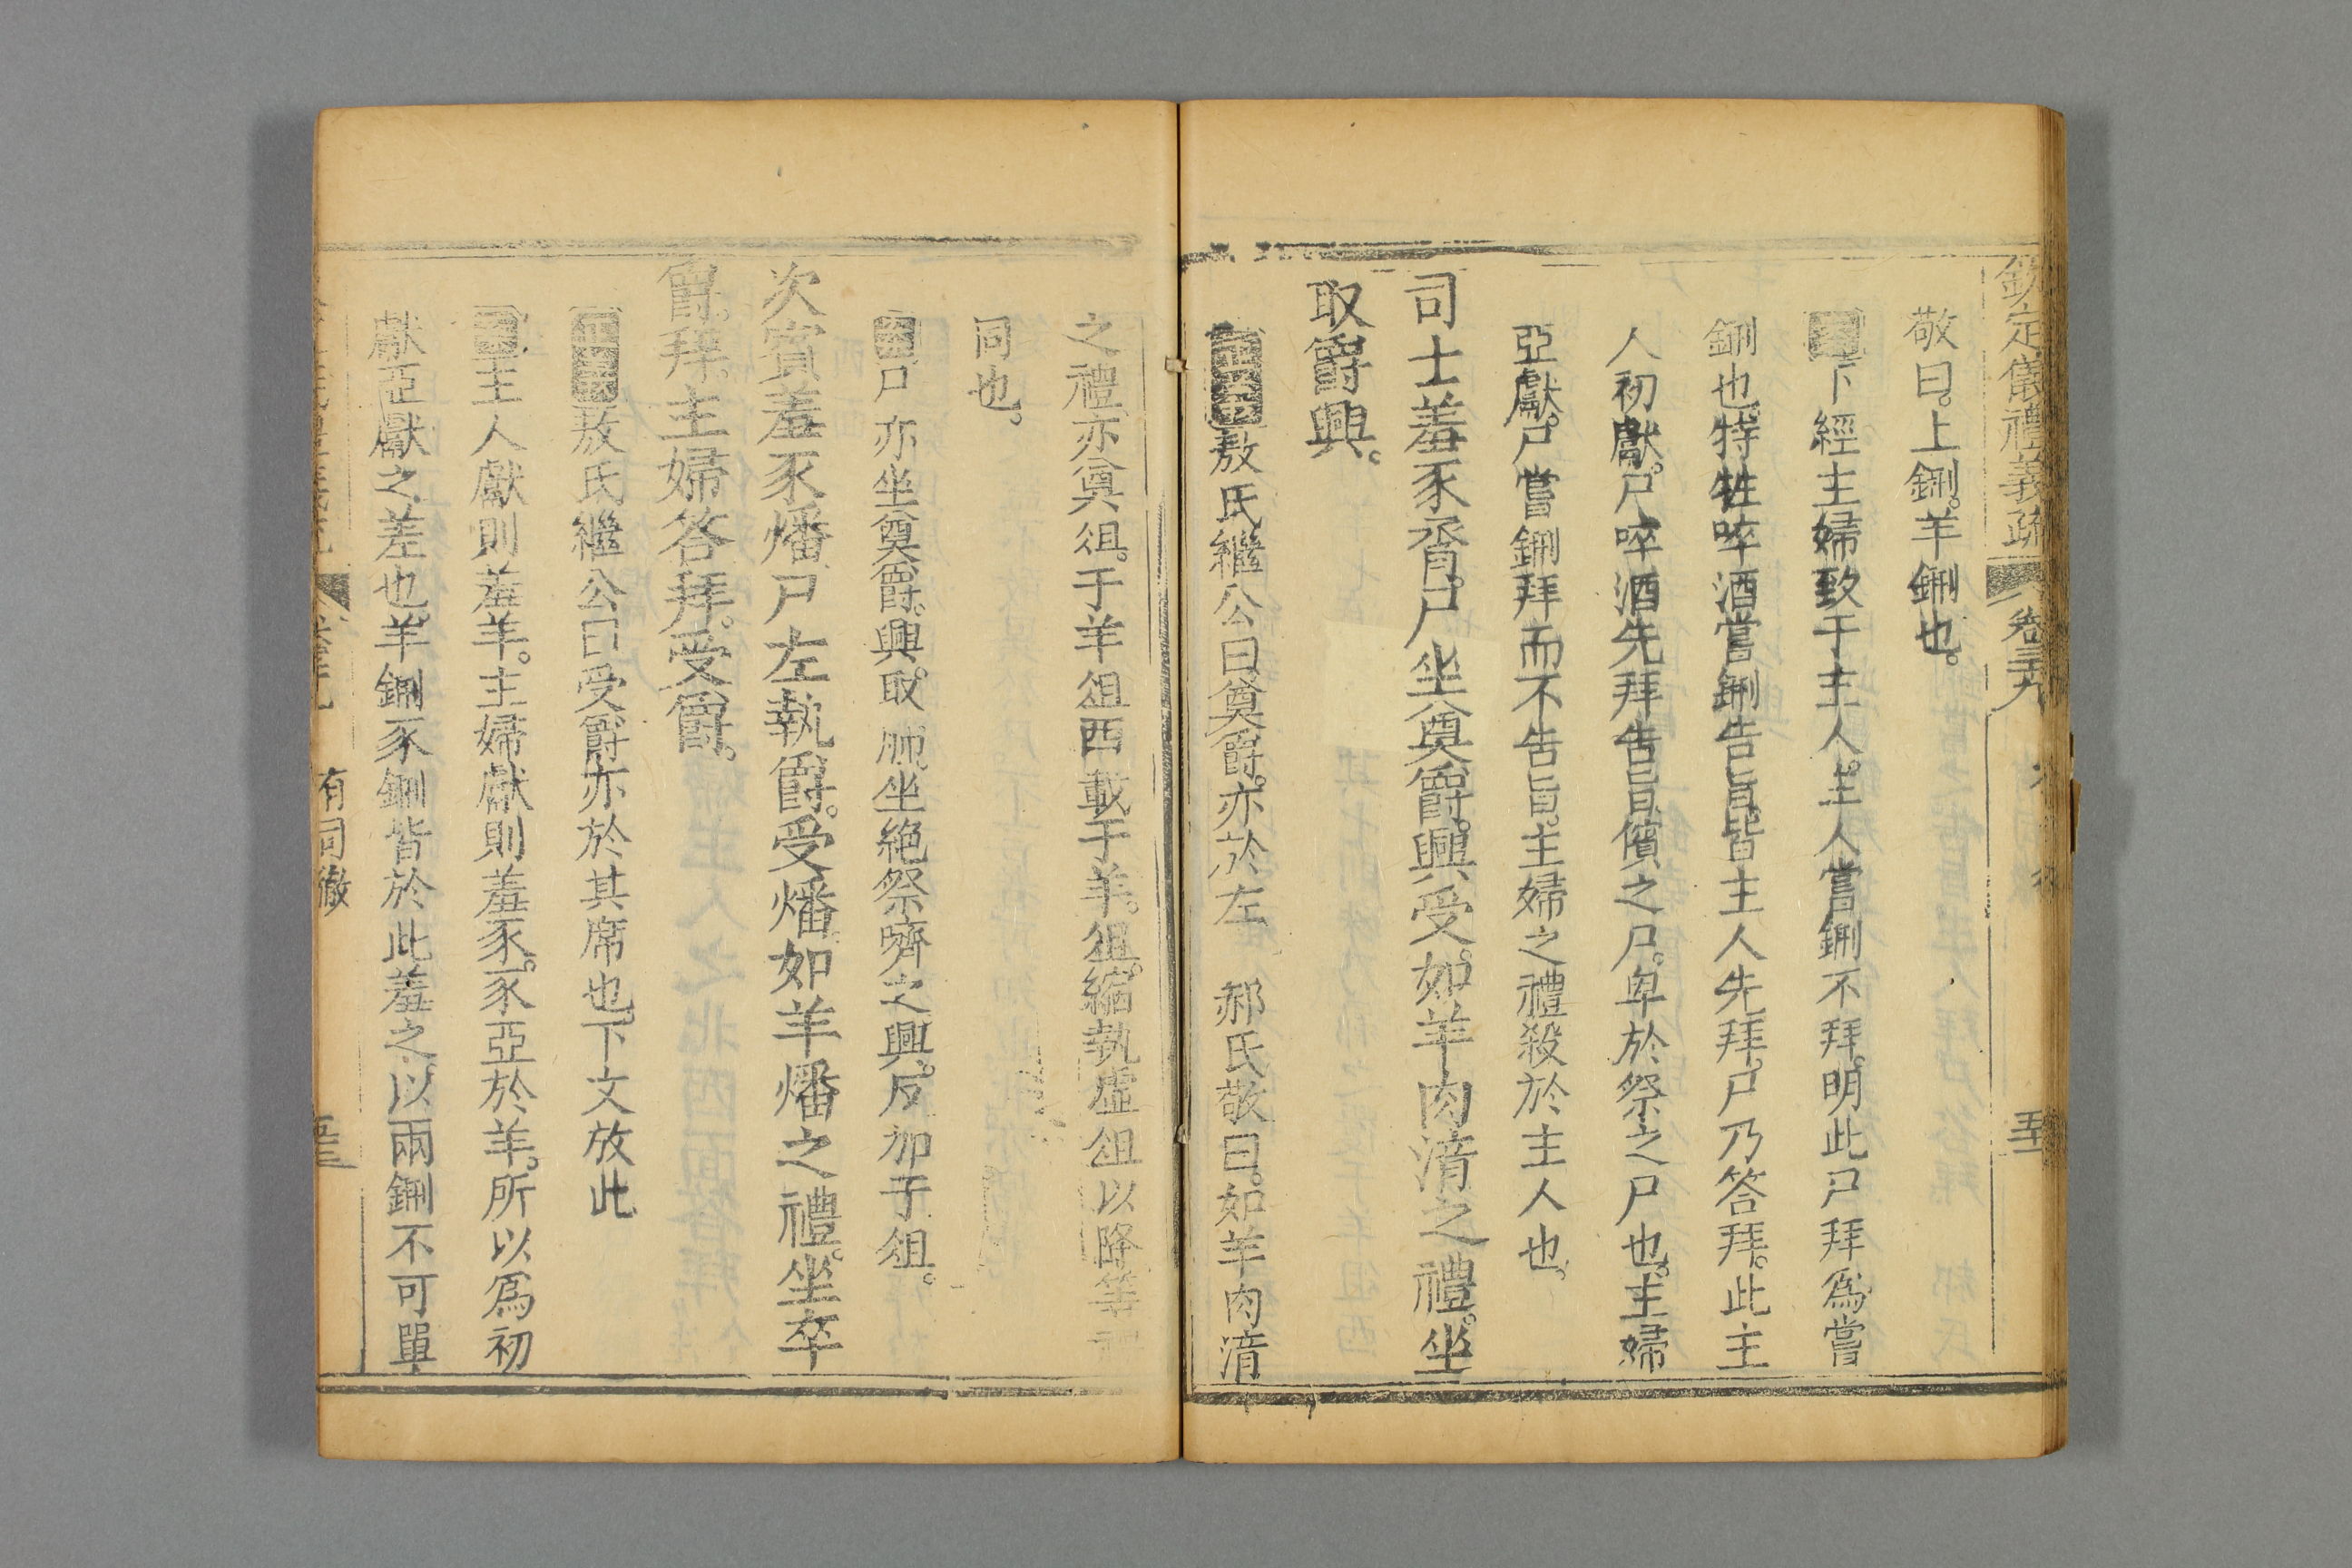 欽定儀禮義疏 卷三十九
敬曰。上鉶。羊鉶也。
下經主婦致于主人。主人嘗鉶不拜。明此尸拜爲嘗
鉶也。特牲啐酒嘗鉶告旨。皆主人先拜。尸乃答拜。此主
人初獻。尸啐酒先拜告旨。儐之尸。卑於祭之尸也。主婦
亞獻。尸嘗鉶拜而不告旨。主婦之禮殺於主人也。
司士羞豕脀。尸坐奠爵。興受。如羊肉湆之禮。坐
取爵興。
正義敖氏繼公曰。奠爵。亦於左 郝氏敬曰。如羊肉湆
之禮。亦奠俎。于羊俎西載于羊。俎。縮執虛俎以降等
同也。
尸亦坐奠爵。興。取肺。坐絶祭嚌之。興。反加于俎。
次賓羞豕燔尸左執爵。受燔如羊燔之禮。坐卒
爵。拜。主婦答拜。受爵。
正義敖氏繼公曰受爵亦於其席也。下文放此
主人獻則羞羊。主婦獻則羞豕。豕亞於羊。所以爲初
獻亞獻之差也。羊鉶豕鉶皆於此羞之。以兩鉶不可單
有司徹